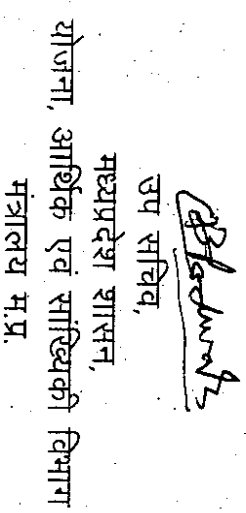 उप सचिव,
मध्यप्रदेश शासन,
योजना, आर्थिक एवं सांख्यिकी विभाग
मंत्रालय म.प्र.